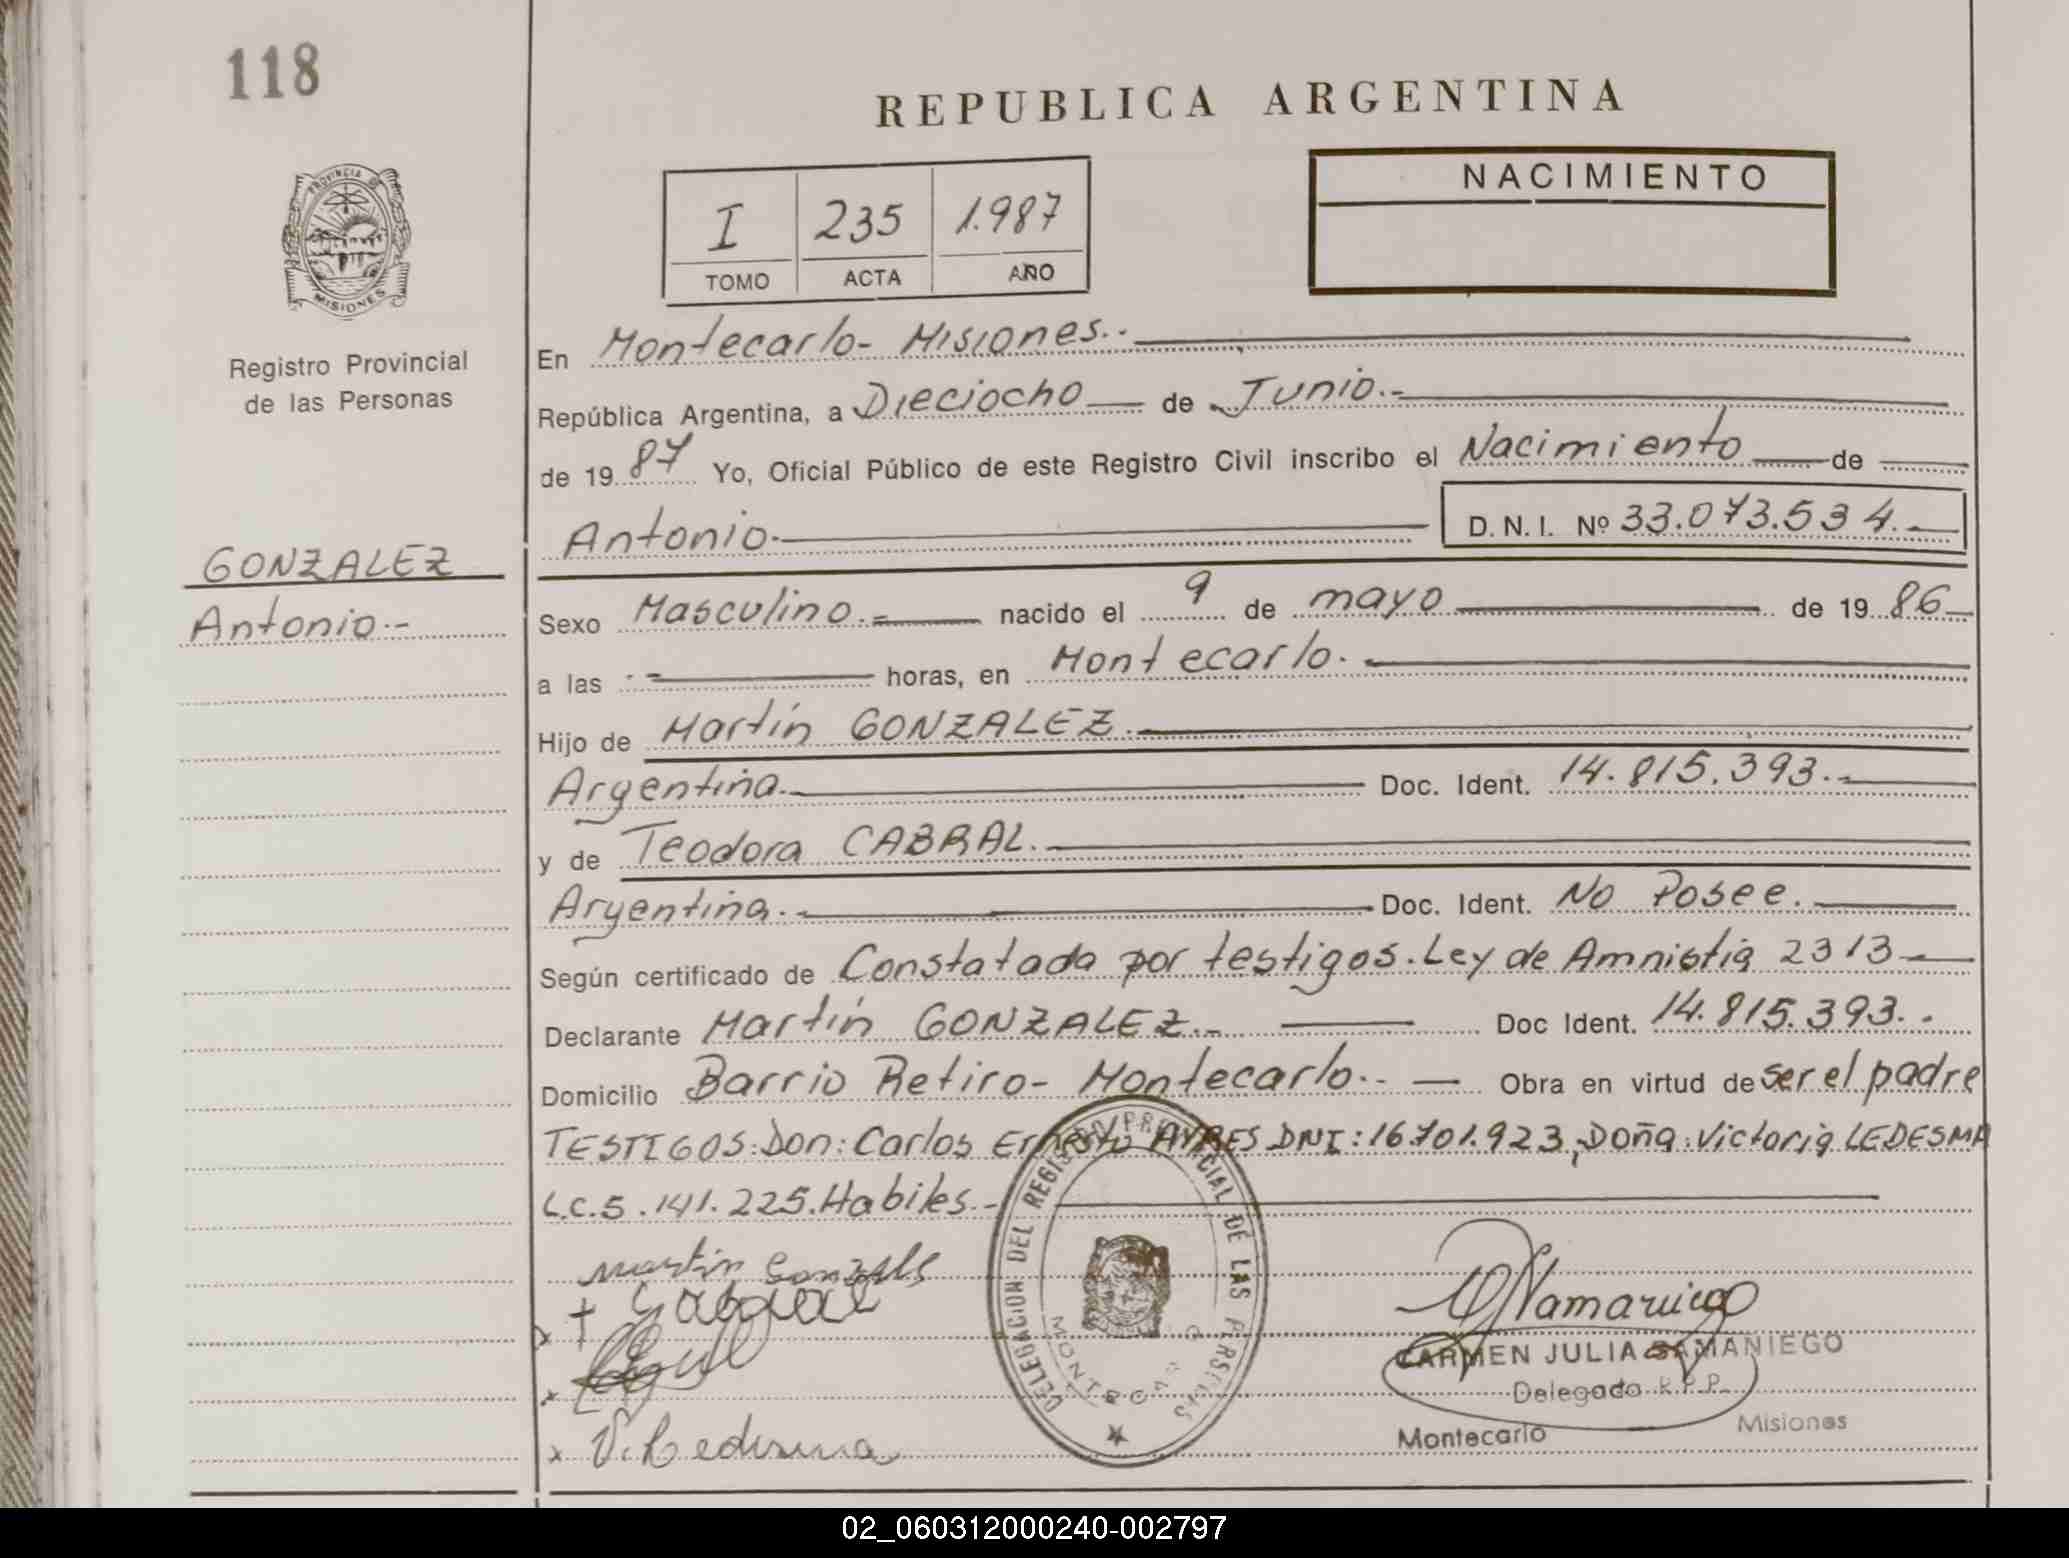 118
REPUBLICA ARGENTINA
PROVINCIA DE
MISIONES
I 235 1.987
TOMO ACTA AÑO
NACIMIENTO
Registro Provincial
de las Personas
GONZALEZ
Antonio.-
En Montecarlo- Misiones.-
República Argentina, a Dieciocho de Junio.-
de 19 87 Yo, Oficial Público de este Registro Civil inscribo el Nacimiento de
Antonio.- D.N.I. Nº 33.073.534.-
Sexo Masculino.- nacido el 9 de mayo de 19 86
a las horas, en Montecarlo.
Hijo de Martín GONZALEZ.
Argentina.- Doc. Ident. 14.815.393.-
y de Teodora CABRAL.
Argentina.- Doc. Ident. No Posee.
Según certificado de Constatada por testigos. Ley de Amnistia 2313
Declarante Martín GONZALEZ.- Doc Ident. 14.815.393.-
Domicilio Barrio Retiro- Montecarlo.- Obra en virtud de ser el padre
TESTIGOS: Don: Carlos Ernesto AYRES DNI: 16.701.923, Doña: Victoria LEDESMA
L.C. 5.141.225. Habiles.-
Martin Gonzales
V. Ledesma
DELEGACION DEL REGISTRO PROVINCIAL DE LAS PERSONAS
MONTECARLO
CARMEN JULIA SAMANIEGO
Delegado R.P.P.
Montecarlo Misiones
02_060312000240-002797